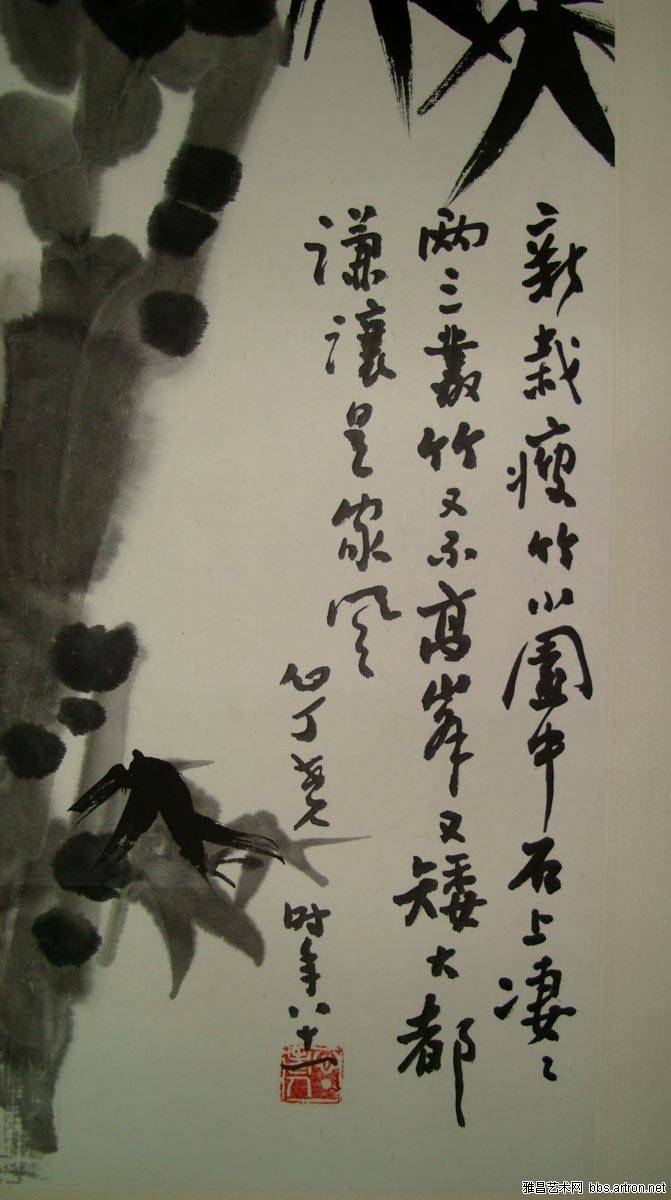 新栽瘦竹小園中石上凄〻
兩三叢竹又不高峯又矮大都
謙讓是家風
時年八十一
雅昌艺术网 bbs.artron.net